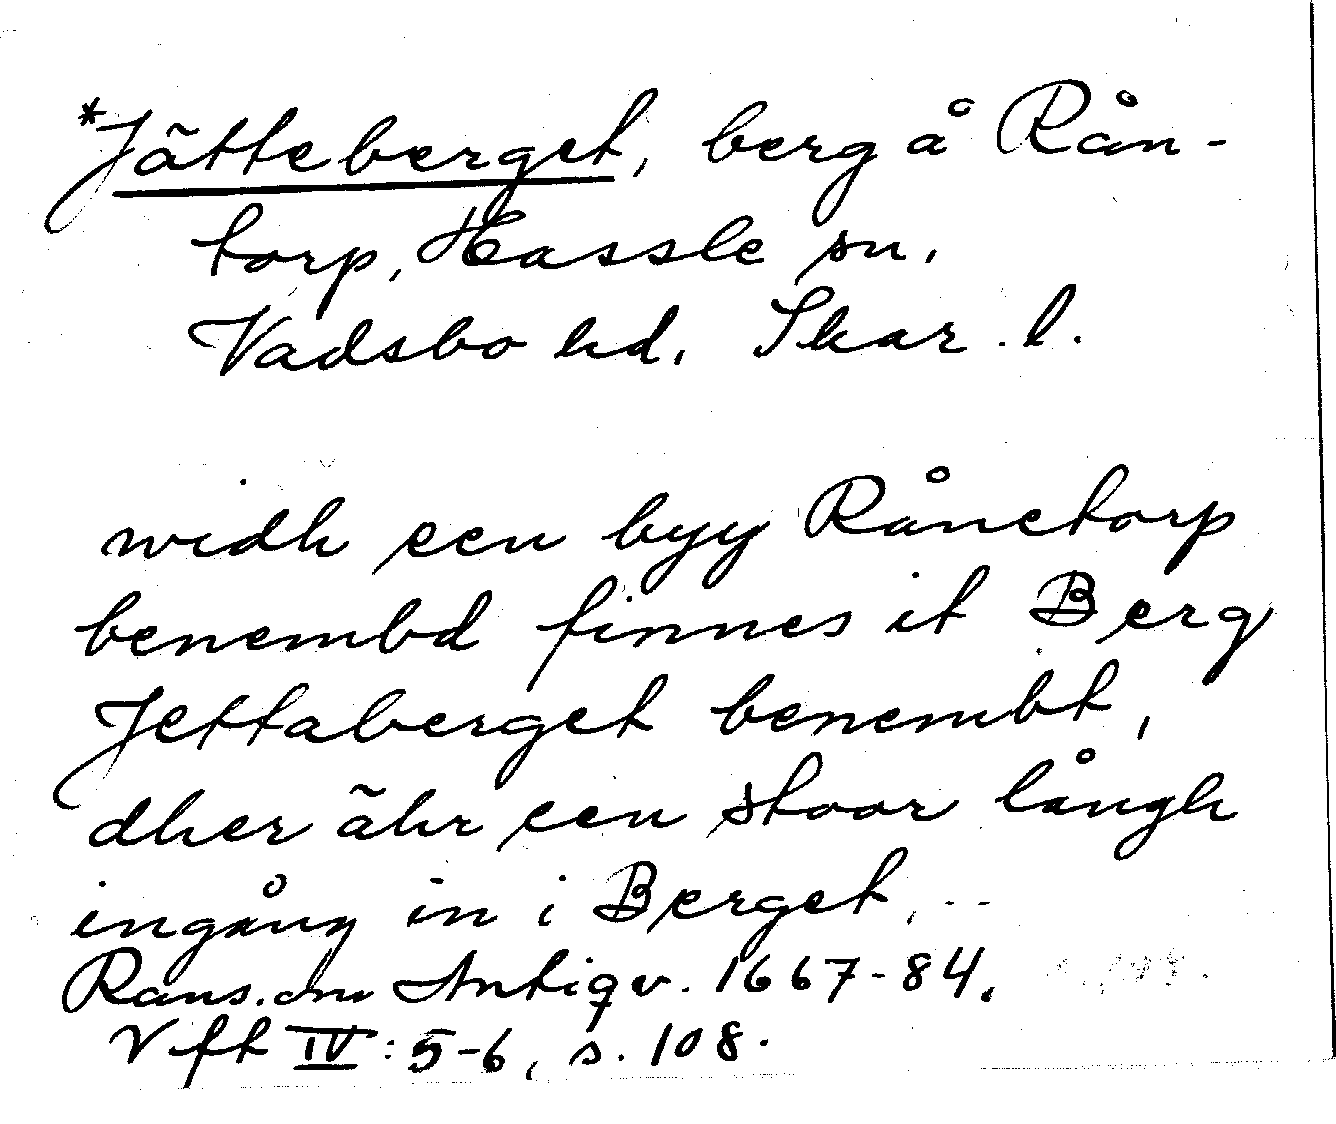 *Jätteberget, berg å Rån-
torp, Hassle sn.
Vadsbo hd, Skar. l.
widh een byy Rånetorp
benembd finnes it Berg
Jettaberget benembt,
dher ähr een stoor långh
ingång in i Berget, --
Rans. om Antiqv. 1667-84.
Vft IV: 5-6, s. 108.